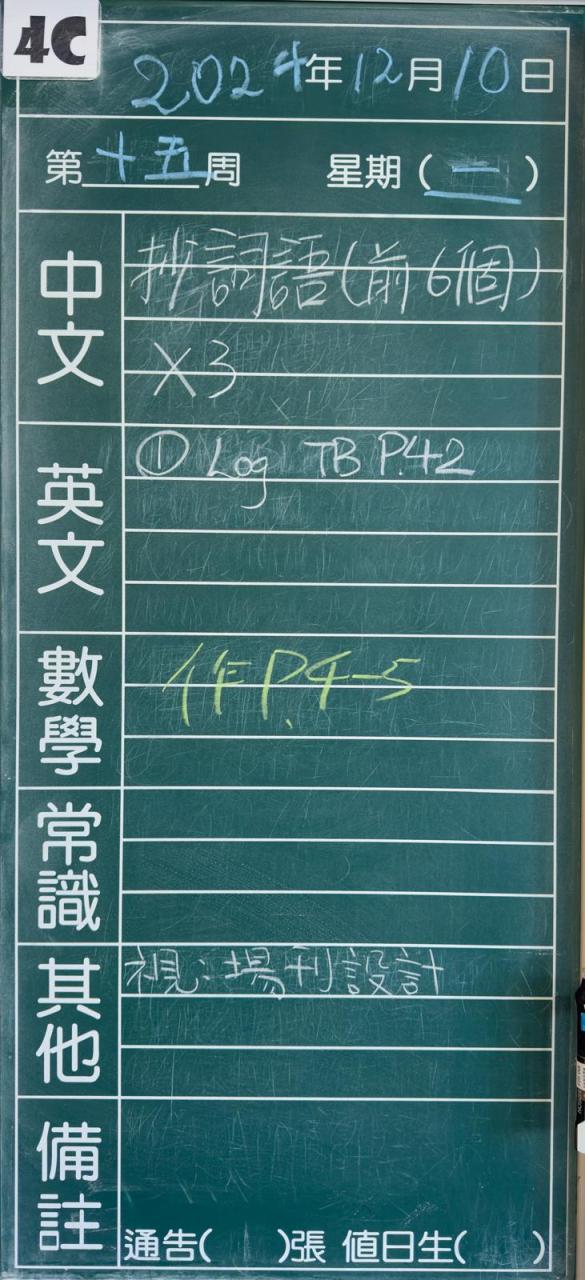 4C
2024年12月10日
第十五周 星期(二)
中文 抄詞語(前6個)
×3
英文 ① Log TB P.42
數學 作P.4-5
常識
其他 視:場刊設計
備註
通告( )張 值日生( )